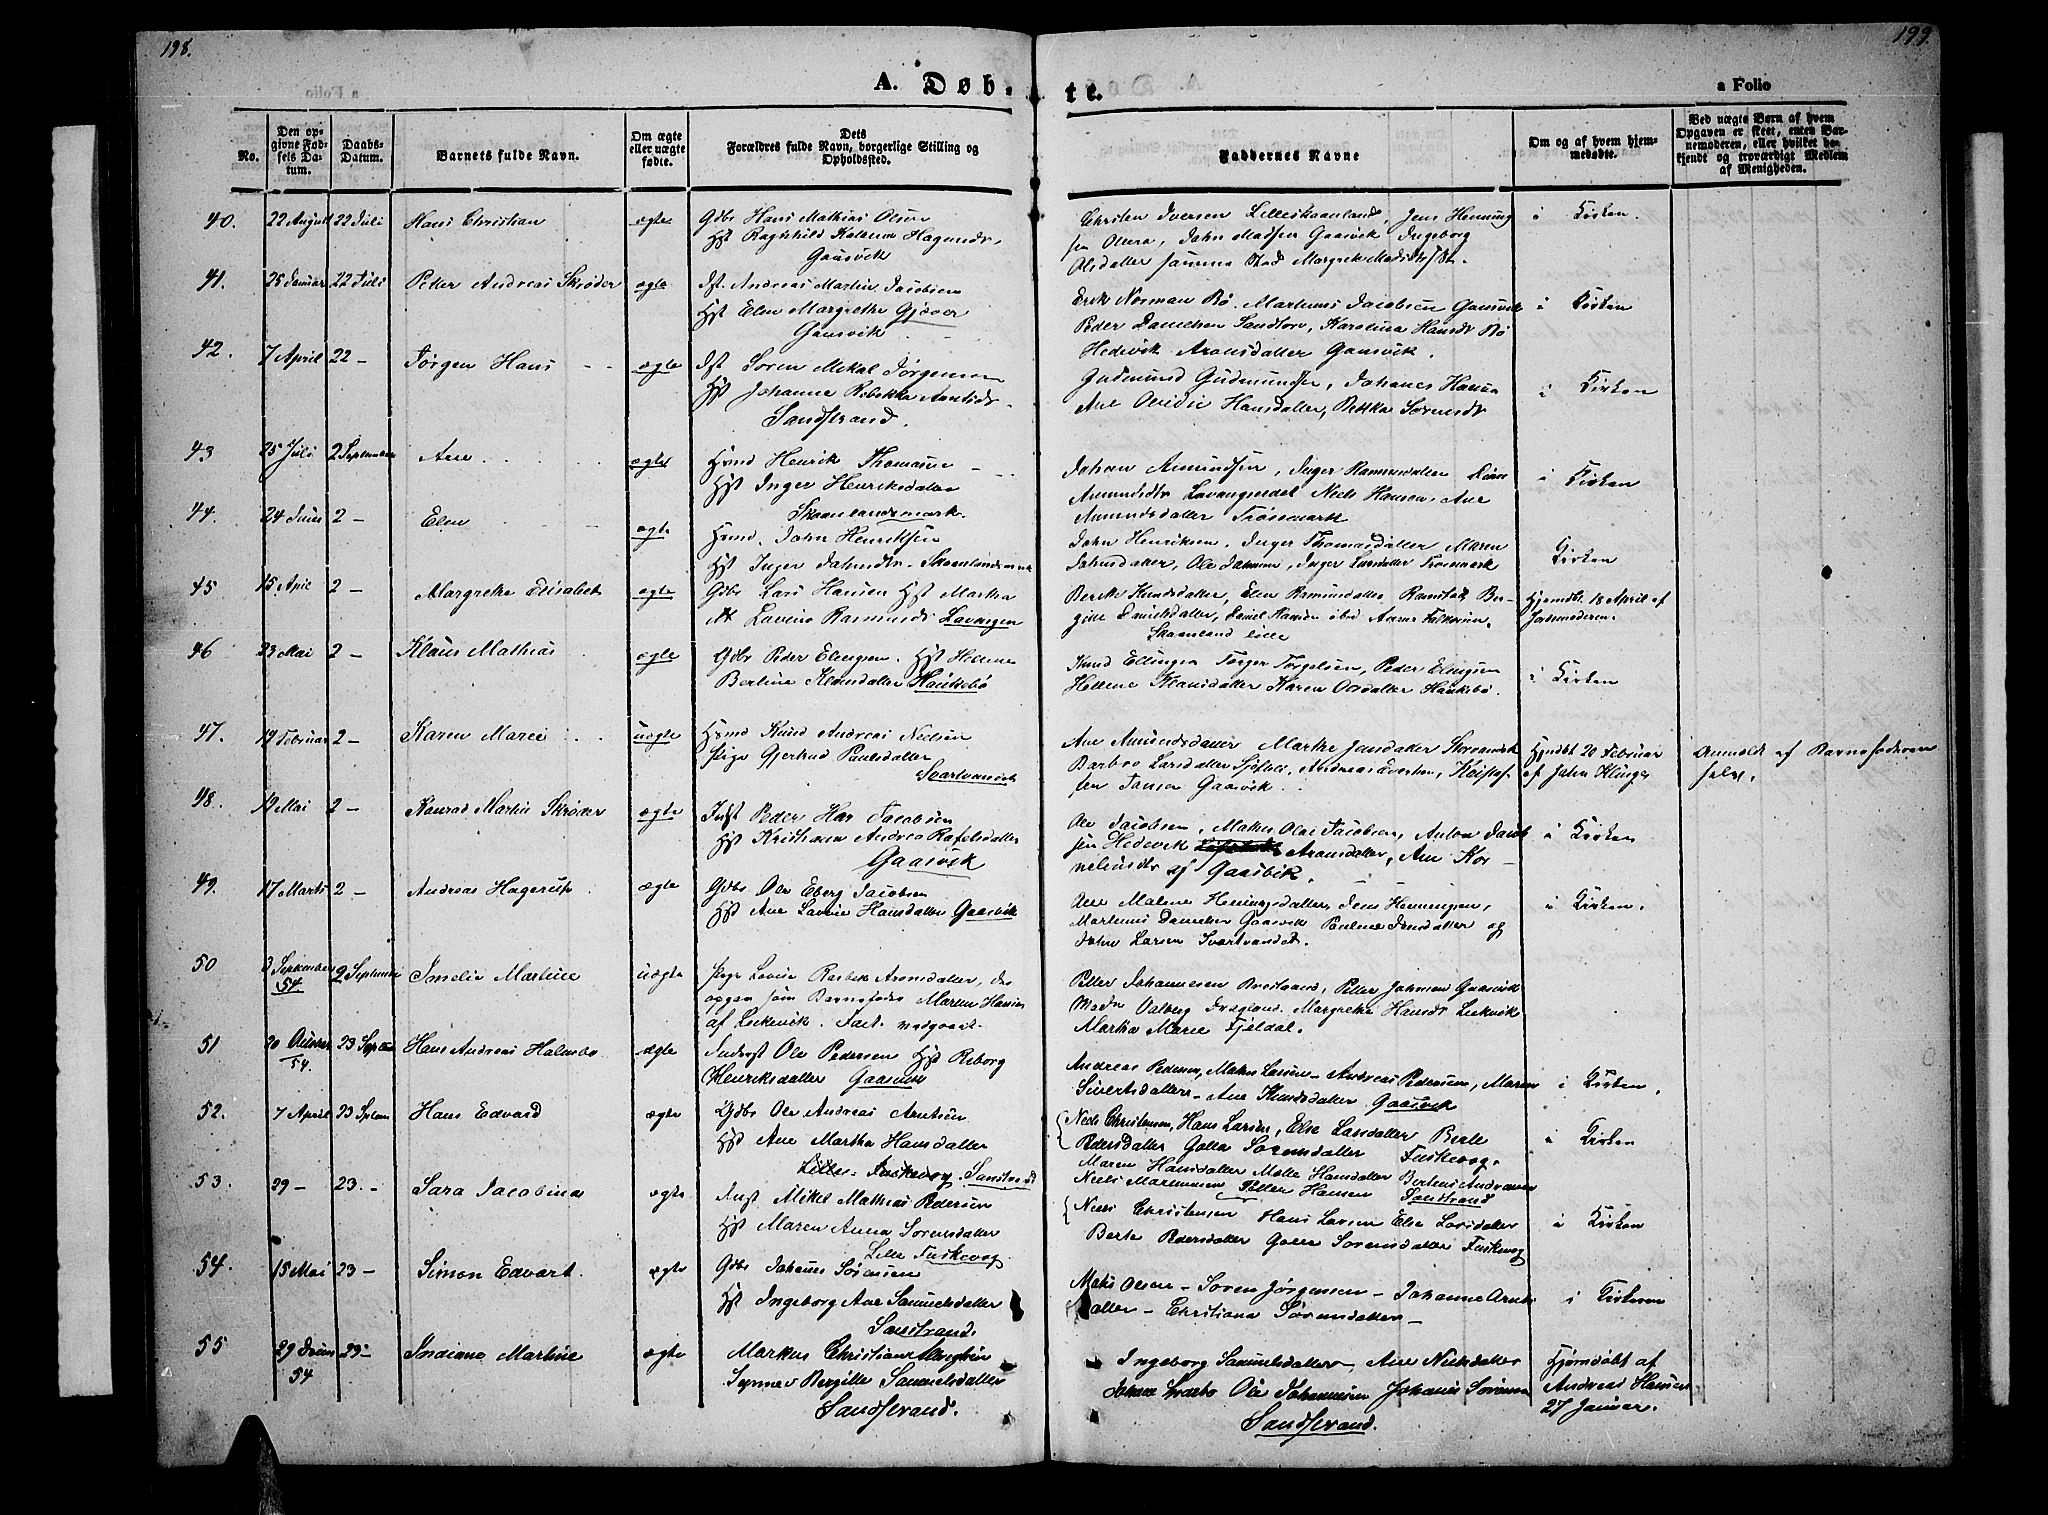 198.
199.
A. Døb-
te.
a Folio
No.
Den op-
givne Fød-
sels Da-
tum.
Daabs-
Datum.
Barnets fulde Navn.
Om ægte
eller uægte
fødte.
Dets
Forældres fulde Navn, borgerlige Stilling og
Opholdssted.
Faddernes Navne
Om og af hvem hjem-
medøbte.
Ved uægte Børn af hvem
Opgaven er skeet, enten Bar-
nemoderen, eller hvilket be-
kjendt og troværdigt Medlem
af Menigheden.
40. 22 August 22 Juli Hans Christian ægte Gdbr Hans Mathias Olsen
Hst Ragnhild Hagensdr.
Gaasvik
Christen Iversen Lilleskaanland, Jens Henning
sen, John Madsen Gaasvik Ingeborg
Olsdatter samme Sted Margrete
i Kirken.
41. 25 Januar 22 Juli Peder Andreas Skrøder ægte Ist. Andreas Martin Jacobsen
Hst Elen Margrethe Gjæver
Gaasvik
Erik Norman Bø. Martinus Jacobsen Gaasvik
Peder Danielsen Sandtorv, Karolina Hansdr Bø
Hedevik Aronsdatter Gaasvik.
i Kirken
42. 7 April 22 - Jørgen Hans ægte Ist Soren Mikal Jørgensen
Hst Johanna Rebekka Arntsdr.
Sandstrand.
Gudmund Gudmundsen, Johanes Hansen
Ane Hansdatter, Sorensdr
i Kirken
43 25 Juli 2 September Ane ægte Hsmd Henrik Thomasen
Hst Inger Henriksdatter
Skaanlandsmark.
Johan Amundsen, Inger Rasmusdatter
Amundsdtr Lavangseidet Niels Hansen, Ane
Amundsdatter Trøssemark
i Kirken
44. 24 Juni 2 - Elen ægte Hsmd. John Henriksen
Hst Inger Johnsdr. Skaanlandsmark
John Henriksen, Inger Thomasdatter Maren
Johnsdatter, Ole Johnsen, Inger Larsdatter Trøssemark
Kirken
45 15 April 2 - Margrethe Elisabet ægte Gdbr Lars Hansen Hst Martha
Lavine Rasmusdr Lavangen
Berit Knudsdatter, Elen Rasmusdatter Ramstak Ber-
gitte Danielsdatter, Daniel Hansen ibid Aarns Falksen,
Skaanland lille
Hjemdbt 18 April af
Jordmoderen.
46 23 Mai 2 - Klaus Mathias ægte Gdbr Peder Elingsen. Hst Hellene
Berline Klausdatter Haukebø
Knud Ellingsen Torger Torgelsen, Peder Elingsen
Hellene Klausdatter Karen Olsdatter Haukebø.
i Kirken
47. 19 Februar 2 - Karen Marei uægte Hsmd Knud Andreas Nielsen
Pige Gjertrud Paulsdatter
Svartvandet
Ane Amundsdatter Marthe Jensdatter
Barbro Larsdatter, Andreas Evertsen, Kristof-
fer Jansen Gaasvik.
Hjmdbt 20 Februar
af John Klinge
Anmeldt af Barnefaderen
selv.
48. 19 Mai 2 - Konrad Martin Skrøder ægte Indst Peder Jacobsen
Hst Kristianna Andrea Rafelsdatter
Gaasvik
Ole Jacobsen, Mathis Olai Jacobsen, Anton Jacob
sen Hedevik Aronsdatter, Ane Kor-
neliusdtr af Gaasvik.
i Kirken
49. 17 Marts 2 - Andreas Hagerup. ægte Gdbr Ole Eberg Jacobsen
Hst Ane Lavine Hansdatter Gaasvik
Ane Malene Heningsdatter, Jens Henningsen,
Martinus Danielsen Gaasvik Pauline Jensdatter og
John Larsen Svartvandet.
i Kirken.
50 3 September
54. 2 September Amelie Martine uægte Pige Lovise Aronsdatter, der
opgav som Barnefader Maren Hansen
af Leikvik. Fact. nedgaaet.
Petter Johannesen, Petter Johnsen Gaasvik
Aalberg. Margrethe Hansdr Leikvik
Martha Marie Fjeldal.
51 20 October
54. 23 Septem Hans Andreas Holmbo ægte Inderst Ole Pedersen Hst Reborg
Henriksdatter Gaasvik
Andreas Pedersen, Mathis Larsen - Andreas Pedersen, Maren
Sivertsdatter - Ane Knudsdatter Gaasvik
i Kirken.
52. 7 April 23 Septem Hans Edvard ægte Gdbr Ole Andreas Arntsen
Hst Ane Martha Hansdatter
Lille-Fuskevog. Sandstrand
Niels Christensen, Hans Larsen, Else Larsdatter Berte
Pedersdatter Golla Sorensdatter Fuskevog.
Maren Hansdatter Malle Hansdatter Bertheus Andreasen
Niels Martinusen Petter Hansen Sandstrand
i Kirken
53. 29 - 23.- Sara Jacobina ægte Indst Mikel Mathias Pedersen
Hst Maren Anna Sorensdatter
Lille Fuskevog.
Niels Christensen Hans Larsen Else Larsdatter
Berte Pedersdatter Golla Sorensdatter Fuskevog
i Kirken
54. 15 Mai 23 - Simon Edvart. ægte Gdbr Johanes Sörensen
Hst Ingeborg Ane Samuelsdatter
Sandstrand.
Mathis Olsen - Soren Jørgensen - Johanne Arnts
datter - Christiana Sörensdatter -
i Kirken
55 29
54 23- Indiane Martine ægte Markus Christian
Bergitte Samuelsdatter
Sandstrand.
Ingeborg Samuelsdatter, Ane Nielsdatter
Ole Johannesen Johanes Sörensen
Sandstrand.
Hjemdöbt af
Andreas Hansen
27 Januar.